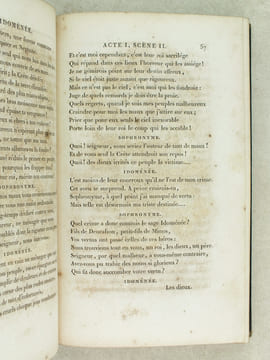 IDOMÉNÉE.
ACTE I, SCÈNE II. 57
Et c'est moi cependant, c'est leur roi sacrilége
Qui répand dans ces lieux l'horreur qui les assiége!
Je ne gémirois point sur leur destin affreux,
Si le ciel étoit juste autant que rigoureux.
Mais ce n'est pas le ciel, c'est moi qui les foudroie:
Juge de quels remords je dois être la proie.
Quels regrets, quand je vois mes peuples malheureux
Craindre pour moi les maux que j'attire sur eux;
Prier que pour eux seuls le ciel inexorable
Porte loin de leur roi le coup qui les accable!
SOPHRONYME.
Quoi! seigneur, vous seriez l'auteur de tant de maux!
Et de vous seul la Crète attendroit son repos!
Quoi! des dieux irrités ce peuple la victime...
IDOMÉNÉE.
L'est moins de leur courroux qu'il ne l'est de mon crime.
Cet aveu te surprend. A peine croirois-tu,
Sophronyme, à quel point j'ai manqué de vertu;
Mais telle est désormais ma triste destinée...
SOPHRONYME.
Quel crime a donc commis le sage Idoménée?
Fils de Deucalion, petit-fils de Minos,
Vos vertus ont passé celles de ces héros:
Nous trouvions tout en vous, un roi, les dieux, un père.
Seigneur, par quel malheur, à vous-même contraire,
Avez-vous pu trahir des noms si glorieux?
Qui fit donc succomber votre vertu?
IDOMÉNÉE.
Les dieux.